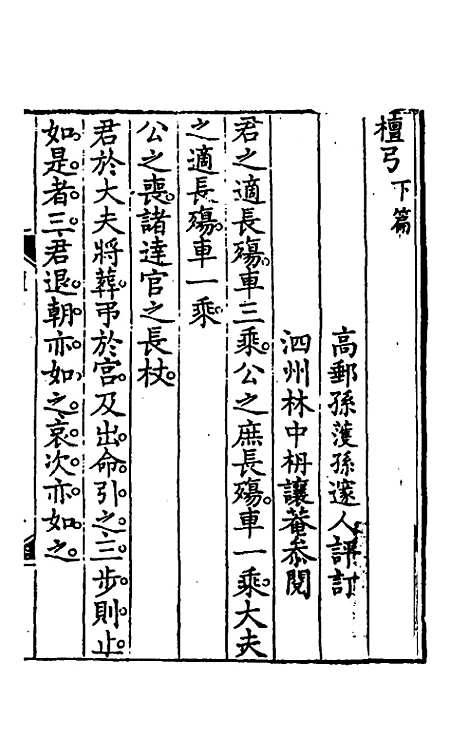 檀弓下篇
高郵孫濩孫邃人評訂
泗州林中枬讓菴叅閱
君之適長殤。車三乘。公之庶長殤。車一乘。大夫
之適長殤。車一乘
公之喪。諸達官之長杖。
君於大夫將葬。弔於宮。及出。命引之。三步則止。
如是者三。君退。朝亦如之。哀次亦如之